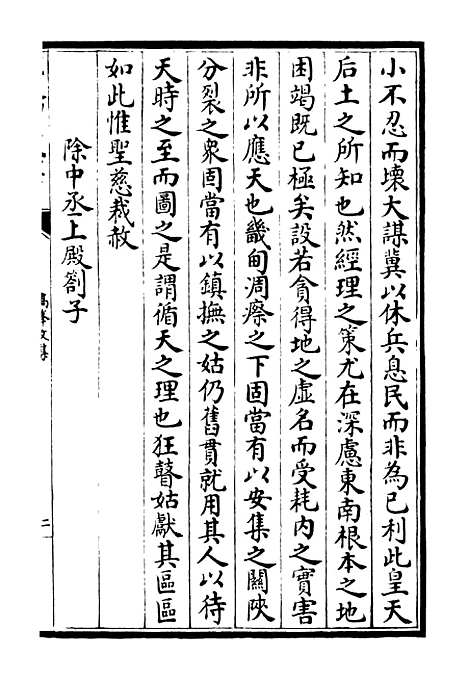 小不忍而壞大謀冀以休兵息民而非為己利此皇天
后土之所知也然經理之策尤在深慮東南根本之地
困竭既已極矣設若貪得地之虛名而受耗内之實害
非所以應天也畿甸凋瘵之下固當有以安集之關陜
分裂之衆固當有以鎮撫之姑仍舊貫就用其人以待
天時之至而圖之是謂循天之理也狂瞽姑獻其區區
如此惟聖慈裁赦
除中丞上殿劄子
二